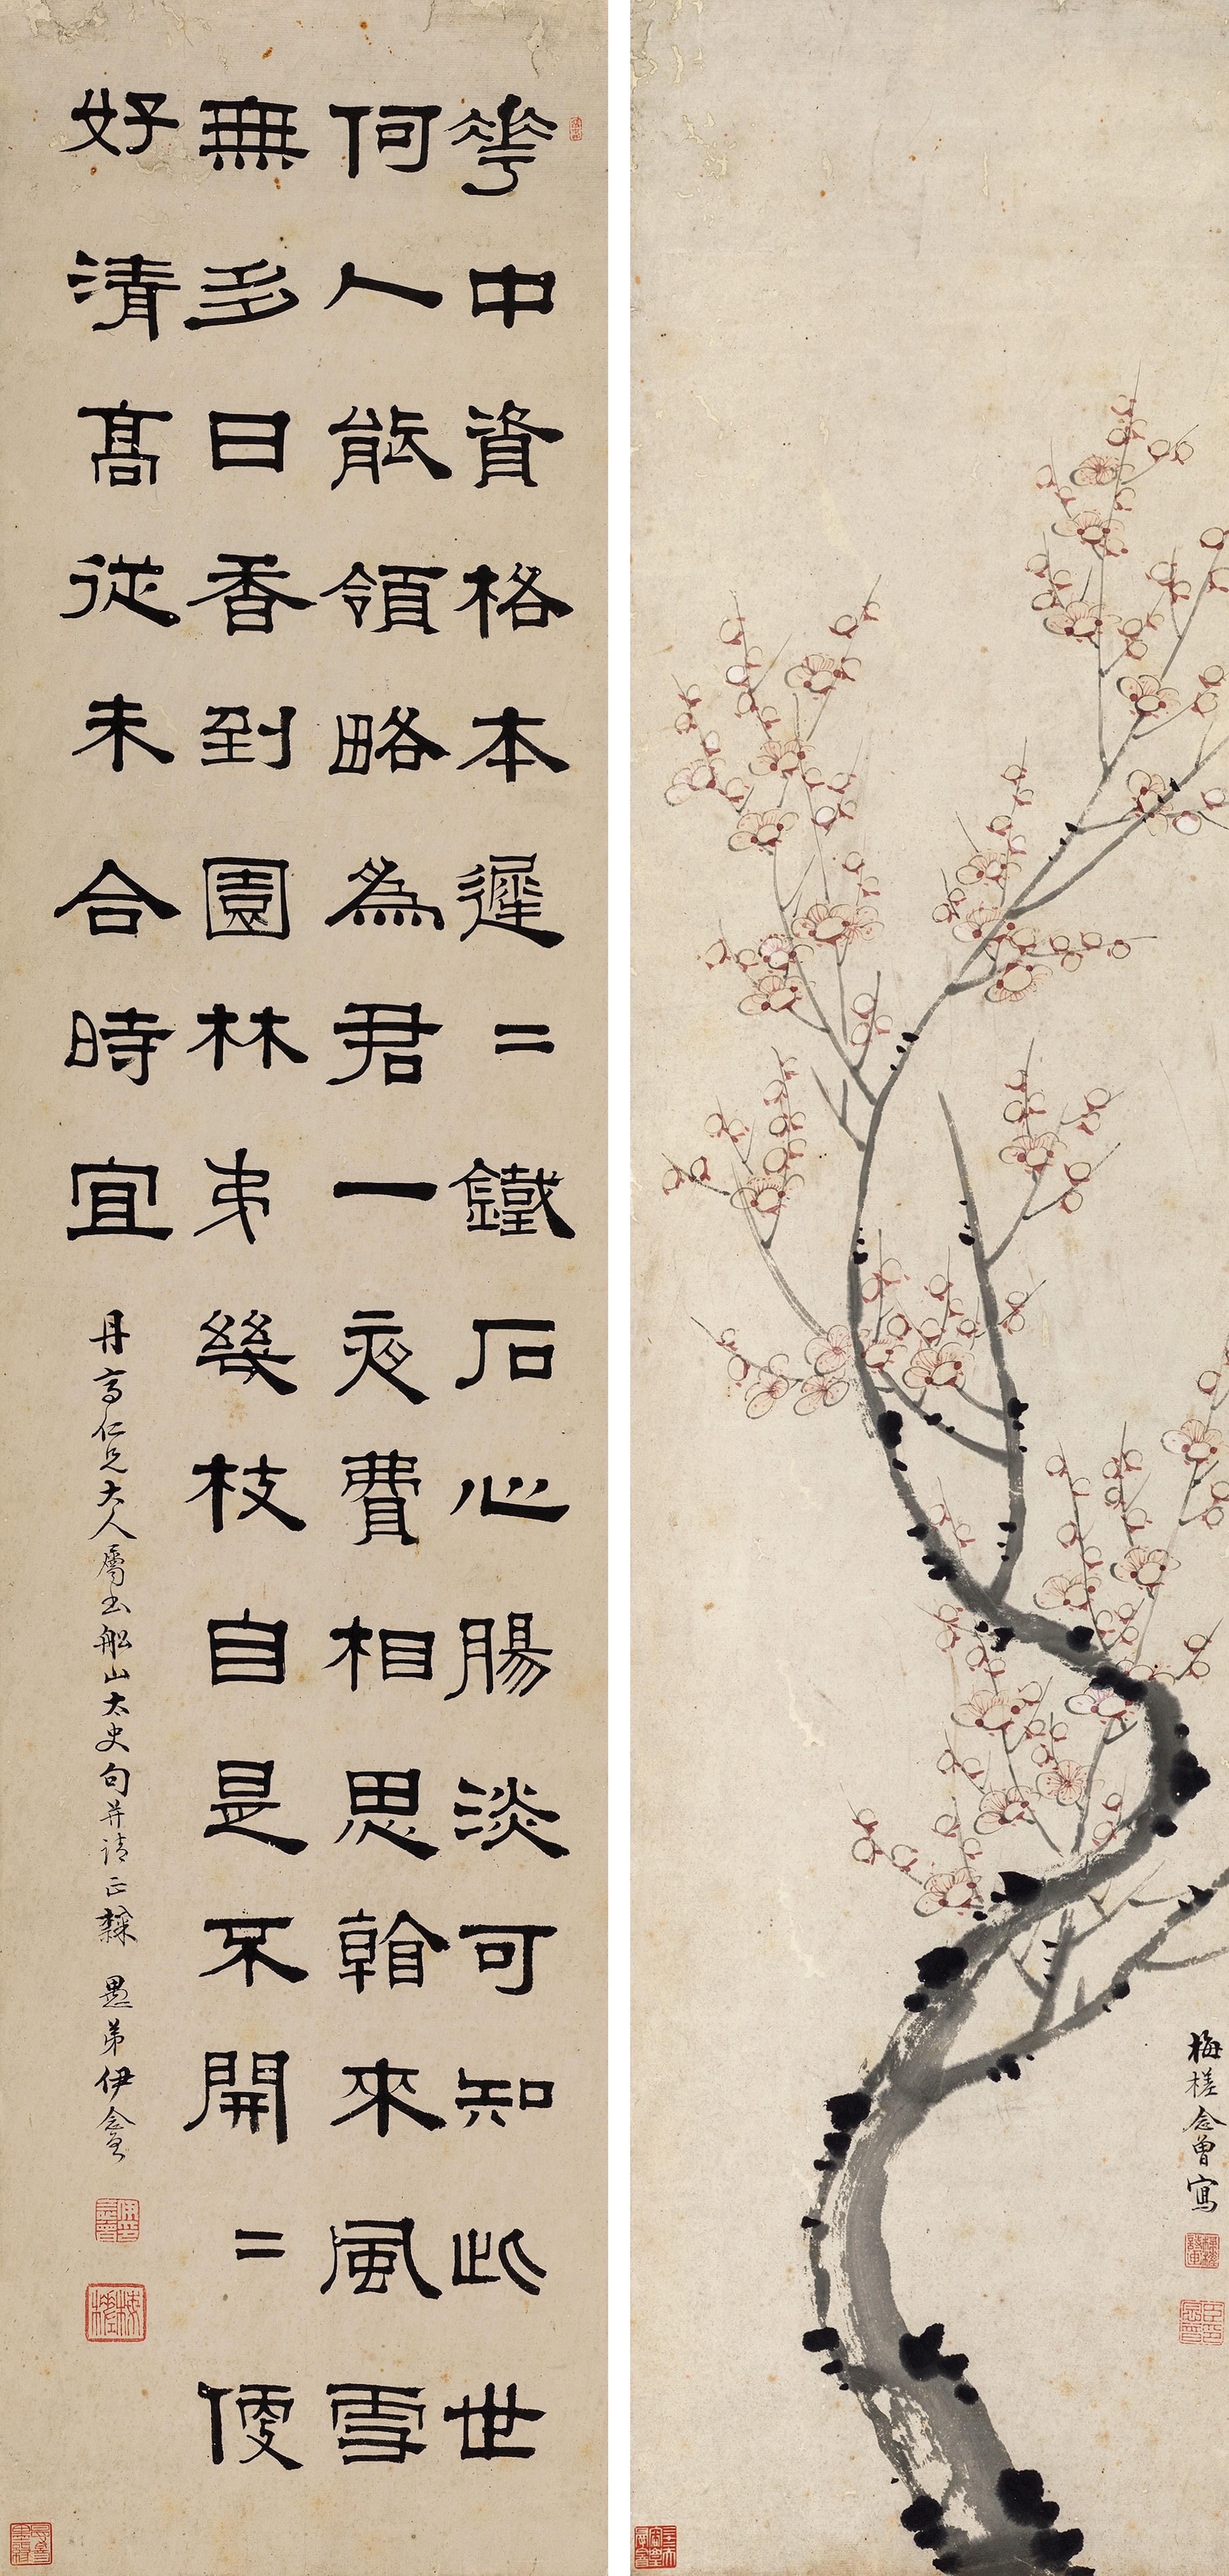 華中資格本遲〻鐵石心腸淡可知此世
何人能領略為君一夜費相思翰來風雪
無多日香到園林弟幾枝自是不開〻便
好清髙從未合時宜
丹高仁兄大人屬書船山太史句并請正隸 愚弟伊念曾
梅槎念曾寫